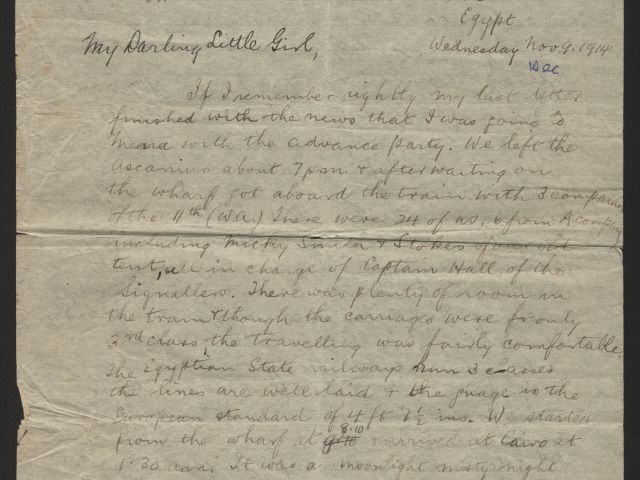 Egypt
My Darling Little Girl,
Wednesday Nov 9. 1914
Dec
If I remember rightly my last letter
finished with the news that I was going to
Mena with the advance party. We left the
Ascanius about 7pm. & after waiting on
the wharf got aboard the train with 3 companies
of the 11th (W.A.) There were 24 of us, 6 from A Company
including Micky Smith & Stokes of our old
tent, all in charge of Captain Hall of the
Signallers. There was plenty of room in
the train & though the carriages were only
3rd class the travelling was fairly comfortable.
The Egyptian State railways run 3 classes
the lines are well laid & the guage is the
European standard of 4 ft 7½ ins. We started
from the wharf at 8.10 & arrived at Cairo at
1.30 am. It was a moonlight misty night